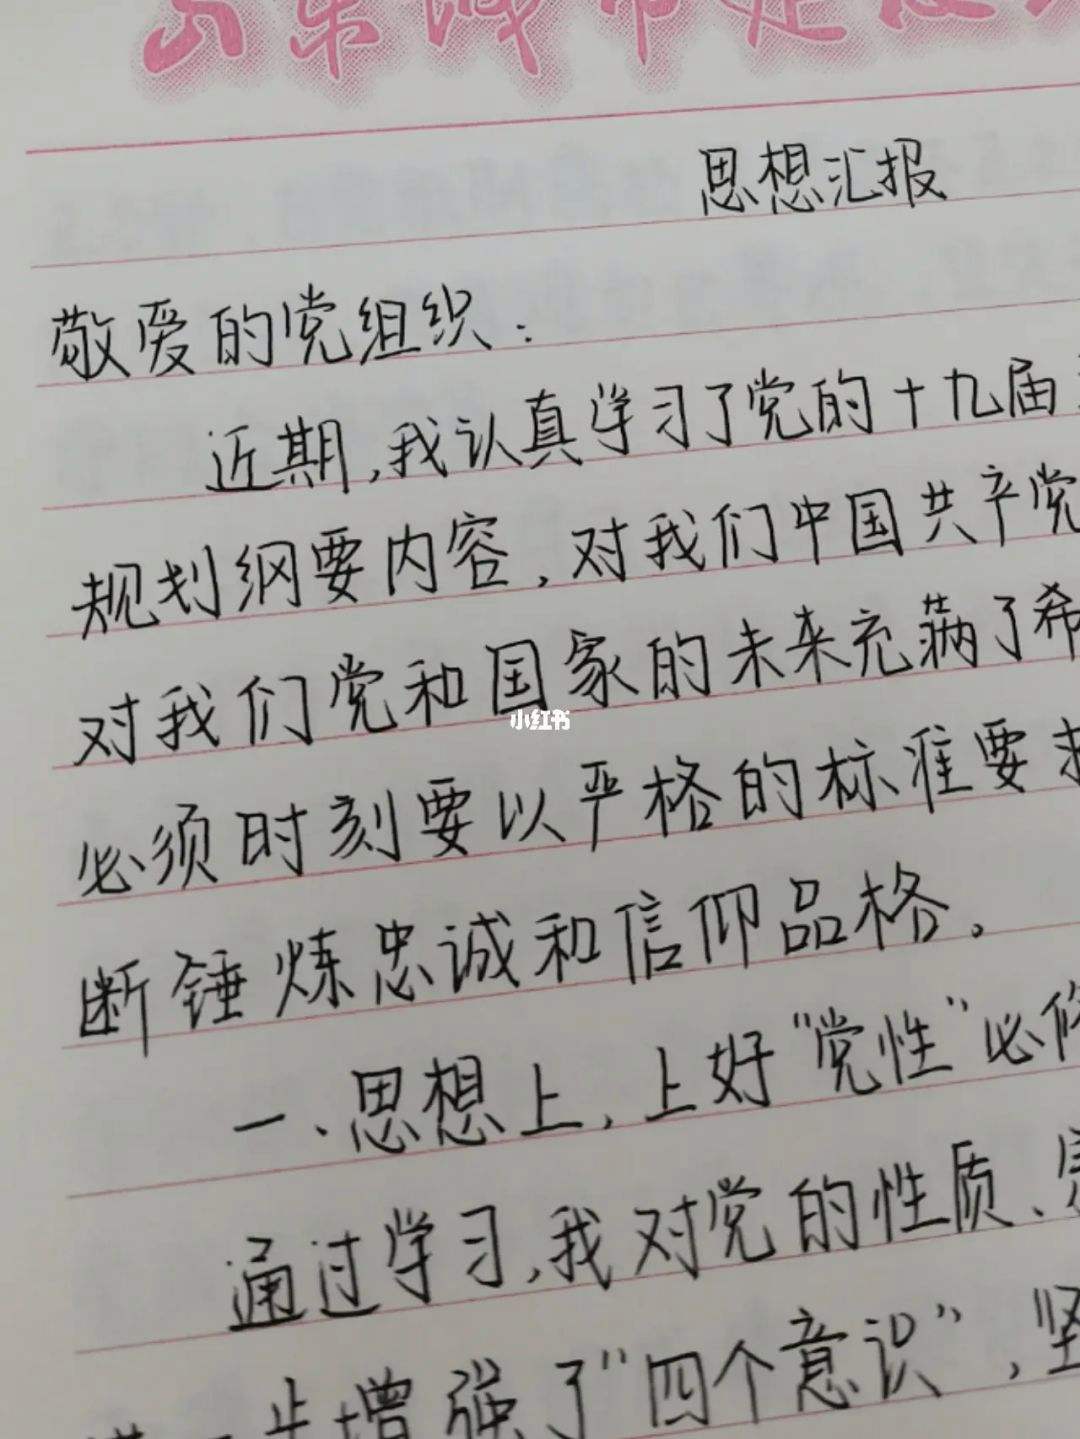 山东城市建设
思想汇报
敬爱的党组织：
近期,我认真学习了党的十九届
规划纲要内容,对我们中国共产党
对我们党和国家的未来充满了希
小红书
必须时刻要以严格的标准要求
断锤炼忠诚和信仰品格。
一、思想上,上好“党性”必修
通过学习,我对党的性质、
一步增强了“四个意识”,坚